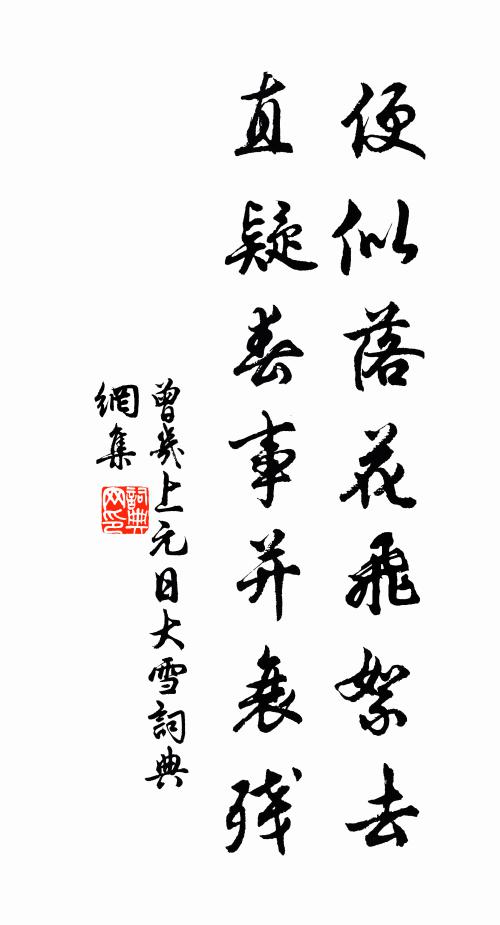 便似落花飛絮去
直疑春事并衰残
曾幾上元日大雪詞典
網集
詞典
网印